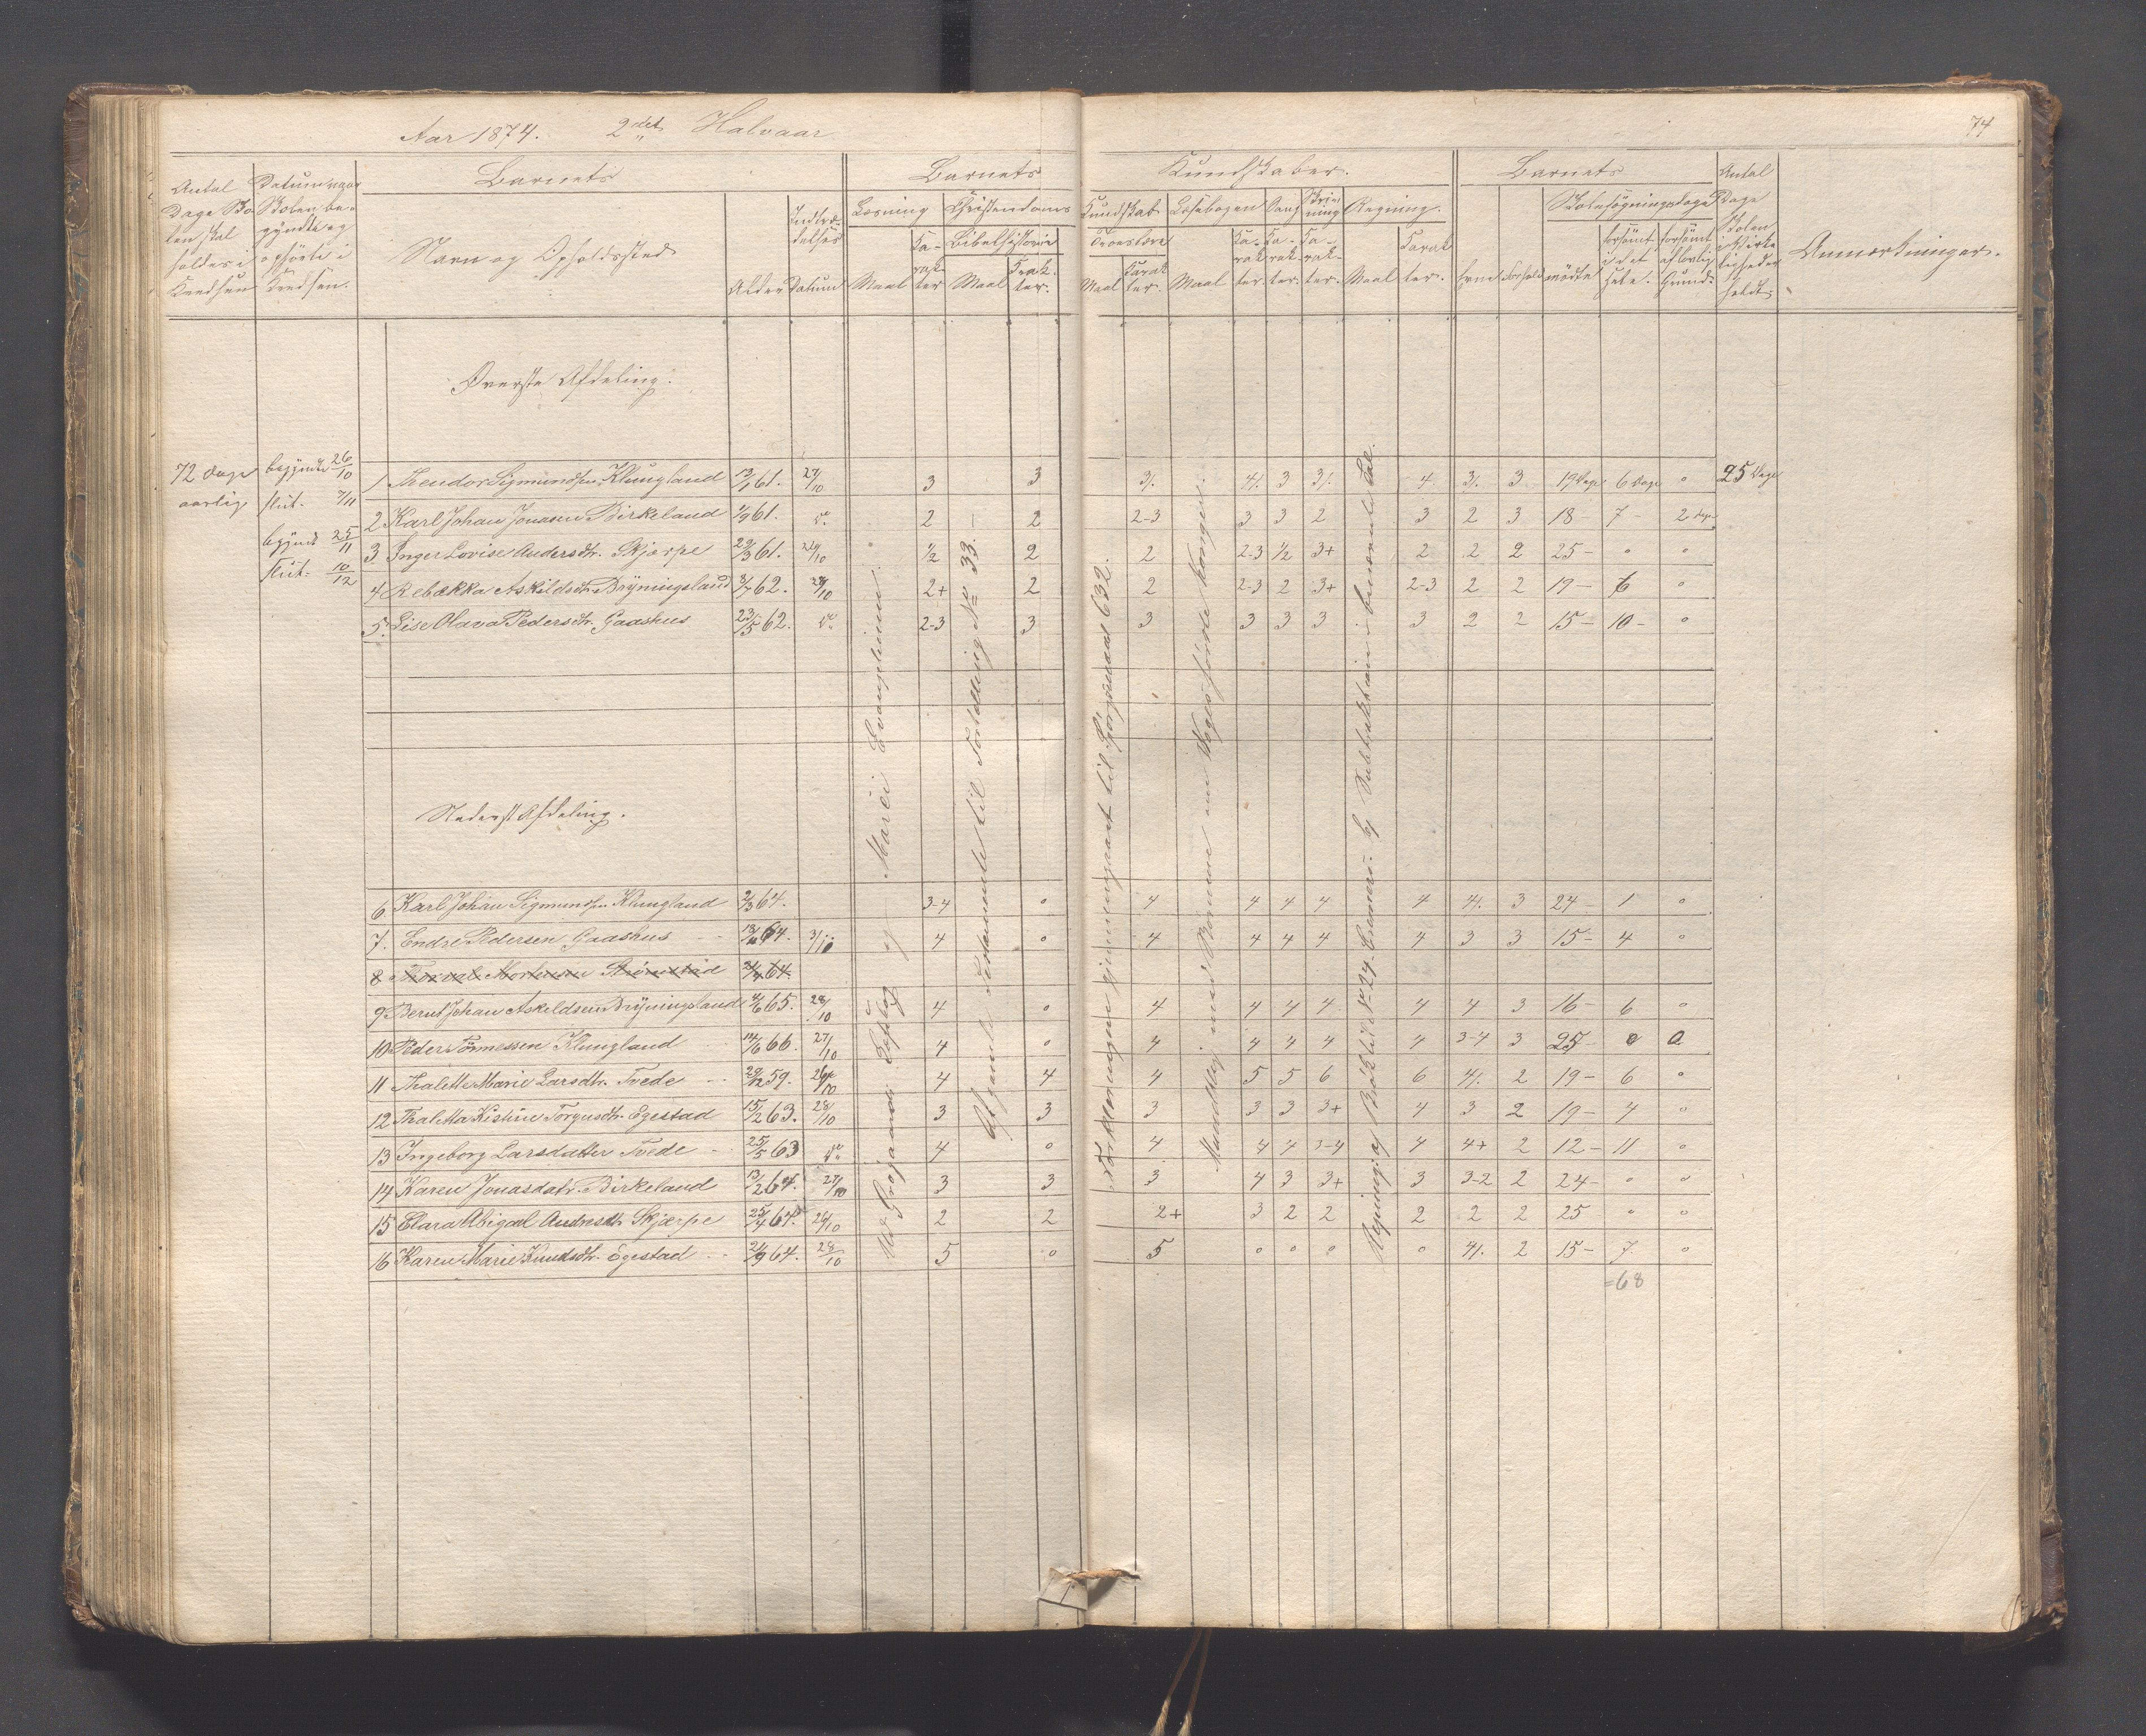 Aar 1874. 2det Halvaar
74
Antal Dage Skolen skal holdes i Kredsen
Datum naar Skolen begyndte og ophørte i Kredsen.
Barnets
Navn og Opholdssted
Alder
Indtrædelses Datum
Barnets Kundskaber.
Læsning
Maal
Karakter
Christendoms Kundskab
Bibelhistorie
Maal
Karakter.
Troeslære
Maal
Karakter.
Læsebogen
Maal
Karakter.
Sang
Karakter.
Skrivning
Karakter.
Regning.
Maal
Karakter.
Barnets
Evne
Forhold
Skolesøgningsdage
mødte
forsømt i det Hele.
forsømt af lovlig Grund:
Antal Dage Skolen i Virkeligheden holdt.
Anmærkninger.
Øverste Afdeling.
72 Dage aarlig
begyndte 26/10
slut. 7/11
begyndt 25/11
slut. 10/12
1 Theodor Sigmundsen Klungland 13/1 61. 27/10 3 3 3/. 4/. 3 3/. 4 3/. 3 19 Dage 6 Dage 0 25 Dage
2 Karl Johan Jonasen Birkeland 1/9 61. do 2 2 2-3 3 3 2 3 2 3 18 - 7 - 2 Dage
3 Inger Lovise Andersdtr. Skjærpe 29/3 61. 26/10 1/2 2 2 2-3 1/2 3+ 2 2 2 25 - 0 0
4 Rebekka Askildsdtr Bryningsland 3/7 62. 28/10 2+ 2 2 2-3 2 3+ 2-3 2 2 19 - 6 0
5. Lise Olava Pedersdtr. Gaashus 23/5 62. do 2-3 3 3 3 3 3 3 2 2 15 - 10 - 0
Nederst Afdeling.
6 Karl Johan Sigmundsen Klungland 2/3 64. 3-4 0 4 4 4 4 4 4/. 3 24 - 1 0
7. Endre Pedersen Gaashus 64. 31/10 4 0 4 4 4 4 4 3 3 15 - 4 0
8 Mortensen 64.
9 Bernt Johan Askeldsen Bryningsland 4/6 65. 28/10 4 0 4 4 4 4 4 4 3 16 - 6 0
10 Peder Tønnessen Klungland 14/6 66. 27/10 4 0 4 4 4 4 4 3-4 3 25 0 0
11 Thalette Marie Larsdtr. Tvede 29/12 59. 26/10 4 4 4 5 5 6 6 4/. 2 19 - 6 0
12 Thaletta Kistine Torgusdtr. Egestad 15/2 63. 28/10 3 3 3 3 3 3+ 4 3 2 19 - 4 0
13 Ingeborg Larsdatter Tvede 25/5 63 do 4 0 4 4 4 3-4 4 4+ 2 12 - 11 0
14 Karen Jonasdatr. Birkeland 13/2 64. 27/10 3 3 3 4 3 3+ 3 3-2 2 24 - 0 0
15 Clara Abigael Andrsdtr Skjærpe 25/4 64. 26/10 2 2 2+ 3 2 2 2 2 2 25 0 0
16 Karen Marie Knudsdtr. Egestad 24/9 64. 28/10 5 0 5 0 0 0 0 4/. 2 15 - 7. 0
=68
af Marci Evangelium.
Testamente til Fortælling No 33.
Forklaringen gjennemgaaet til Spørgsmaal 632.